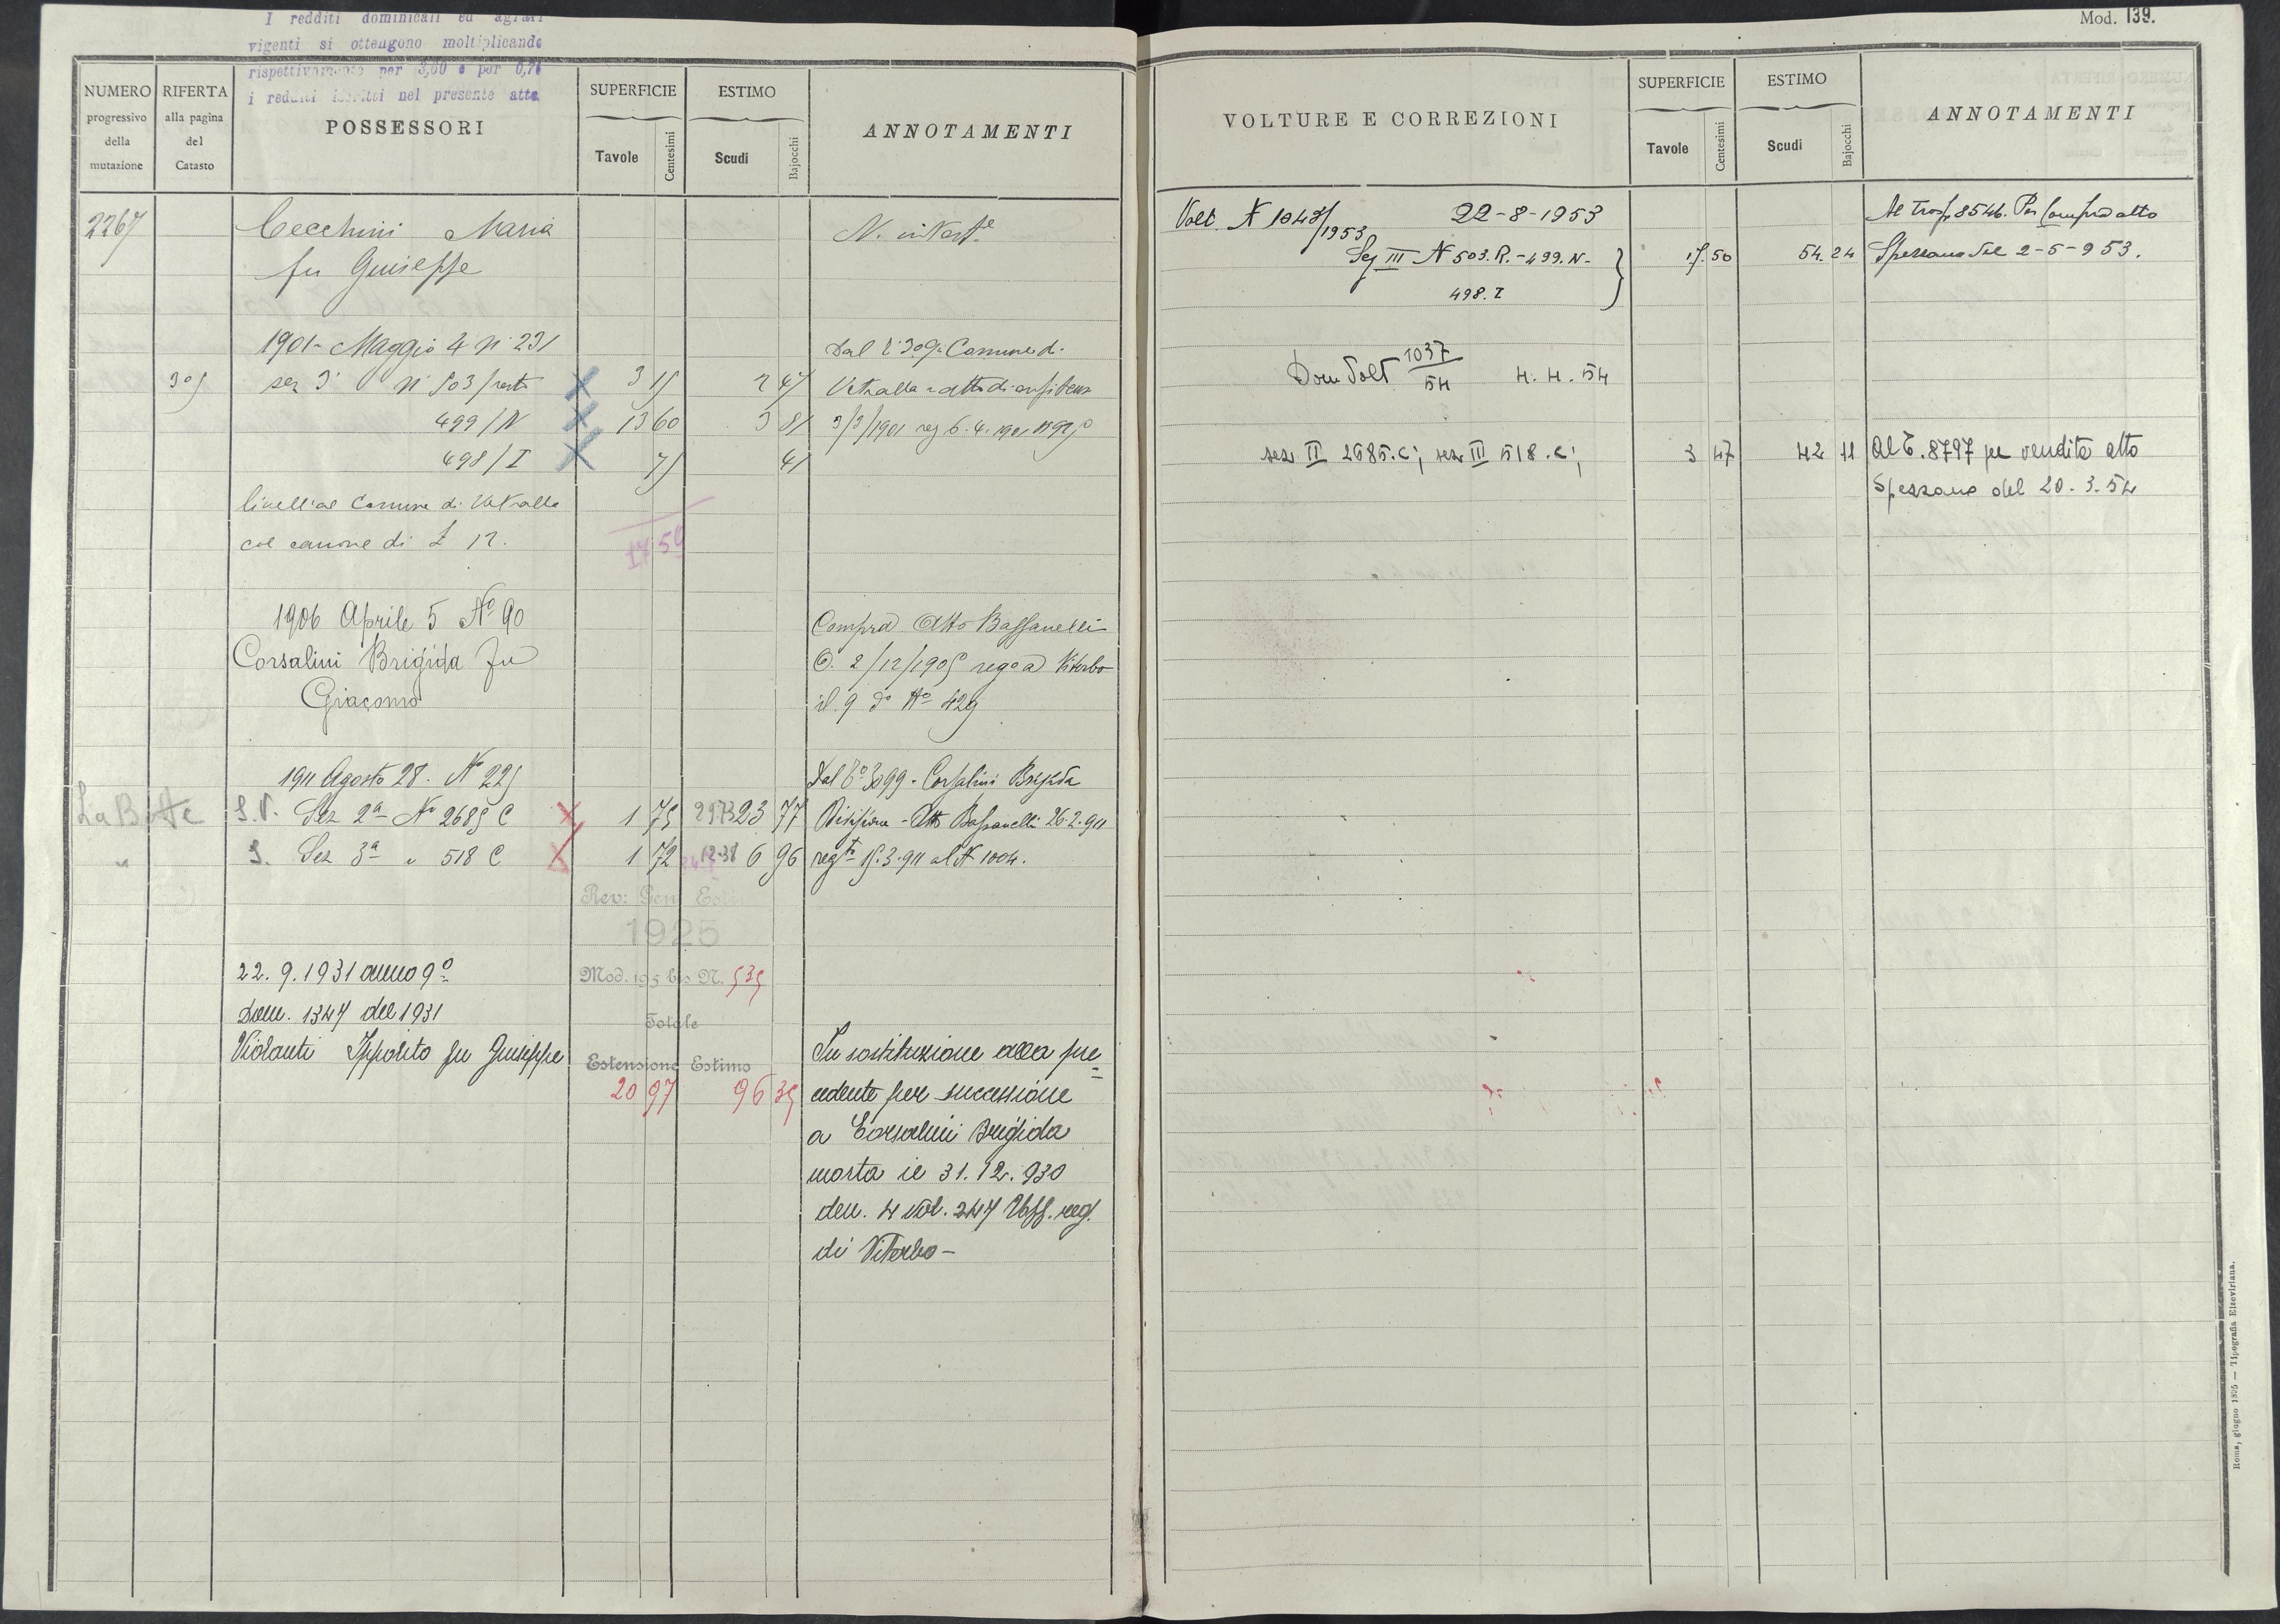 I redditi dominicali ed agrari
vigenti si ottengono moltiplicando
rispettivamente per 3,60 e per 0,76
i redditi iscritti nel presente atto
NUMERO progressivo della mutazione
RIFERTA alla pagina del Catasto
POSSESSORI
SUPERFICIE
Tavole Centesimi
ESTIMO
Scudi Bajocchi
ANNOTAMENTI
2267 Cecchini Maria
fu Giuseppe
1901 - Maggio 4 n. 231 Dal
305 sez 3ª n 503/resto 3 15 2 47 Vetralla = atto di enfiteusi
499/N 13 60 3 81 3/3/1901 reg 6.4.1901
498/I 75 41
livell. al Comune di Vetralla
col canone di £ 12.
17 50
1906 Aprile 5 Nº 90 Compra Atto Bassanelli
Corsalini Brigida fu 2/12/1905 rego a Viterbo
Giacomo il 9 dº Nº 429
1911 Agosto 28. Nº 225 Dal Tº 3099 - Corsalini Brigida
La Botte S.V. Sez 2ª Nº 2685 C 1 75 29.73 23 77 Divisione - Atto Bassanelli 26.2.911
" S. Sez 3ª " 518 C 1 72 12.38 6 96 regto 15.3.911 al N 1004.
Rev: Gen Esti
1925
22.9.1931 anno 9º Mod. 195 bis N. 535
Dom. 1347 del 1931 Totale
Violanti Ippolito fu Giuseppe Estensione Estimo In sostituzione alla pre=
20 97 96 35 cedente per successione
a Corsalini Brigida
morta il 31.12.930
den. 4 vol. 247 Uff. reg.
di Viterbo -
Mod. 139.
VOLTURE E CORREZIONI
SUPERFICIE
Tavole Centesimi
ESTIMO
Scudi Bajocchi
ANNOTAMENTI
Volt. N 1043/1953 22-8-1953 Al 8546. Per Compra atto
Sez III N 503.R. - 499.N - 17.50 54.24 Spezzano del 2-5-953.
498.I
Dom Volt 1037/54 4.4.54
sez II 2685.C; sez III 518.C; 3 47 42 11 Al T. 8797 per vendita atto
Spezzano del 20.3.54
Roma, giugno 1895 — Tipografia Elzeviriana.